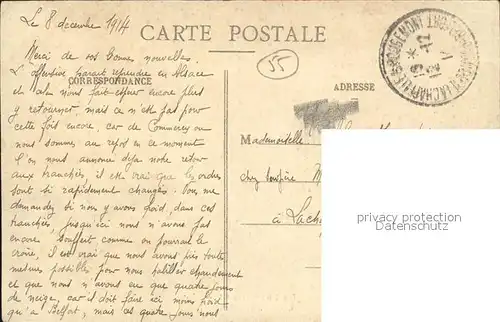 Le 8 décembre 1914
CARTE POSTALE
Merci de vos bonnes nouvelles.
L'offensive parait reprendre en Alsace
CORRESPONDANCE
ADRESSE
55
et cela nous fait espérer encore plus
y retourner, mais ce n'est pas pour
cette fois encore, car de Commercy où
nous sommes au repos en ce moment
l'on nous annonce déjà notre retour
aux tranchées, il est vrai que les ordres
sont si rapidement changés. Vous me
demandez si nous y avons froid, dans ces
tranchées, jusqu'ici nous n'avons pas
encore souffert comme on pourrait le
croire, il est vrai que nous avons pris toutes
mesures possibles pour nous habiller chaudement
ce que nous n'avons eu que quatre jours
de neige, car il doit faire ici moins froid
qu'à Belfort, mais ces quatre jours nous
Mademoiselle
chez
à Lach
privacy protection
watermark